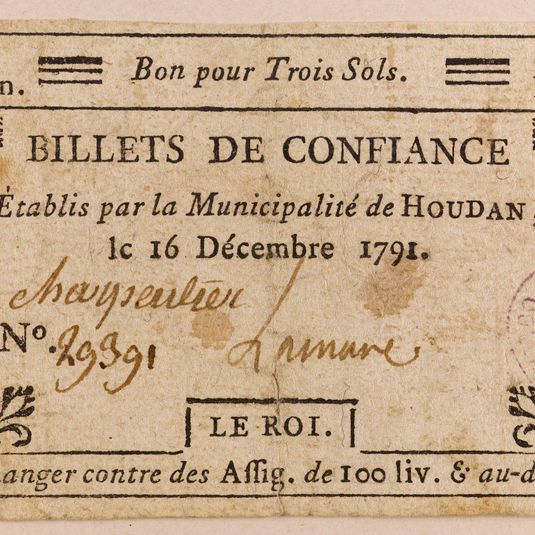 n. Bon pour Trois Sols.
BILLETS DE CONFIANCE
Établis par la Municipalité de HOUDAN,
le 16 Décembre 1791.
Charpentier
N°. 29391 Lamare
LE ROI.
anger contre des Aſſig. de 100 liv. & au-d